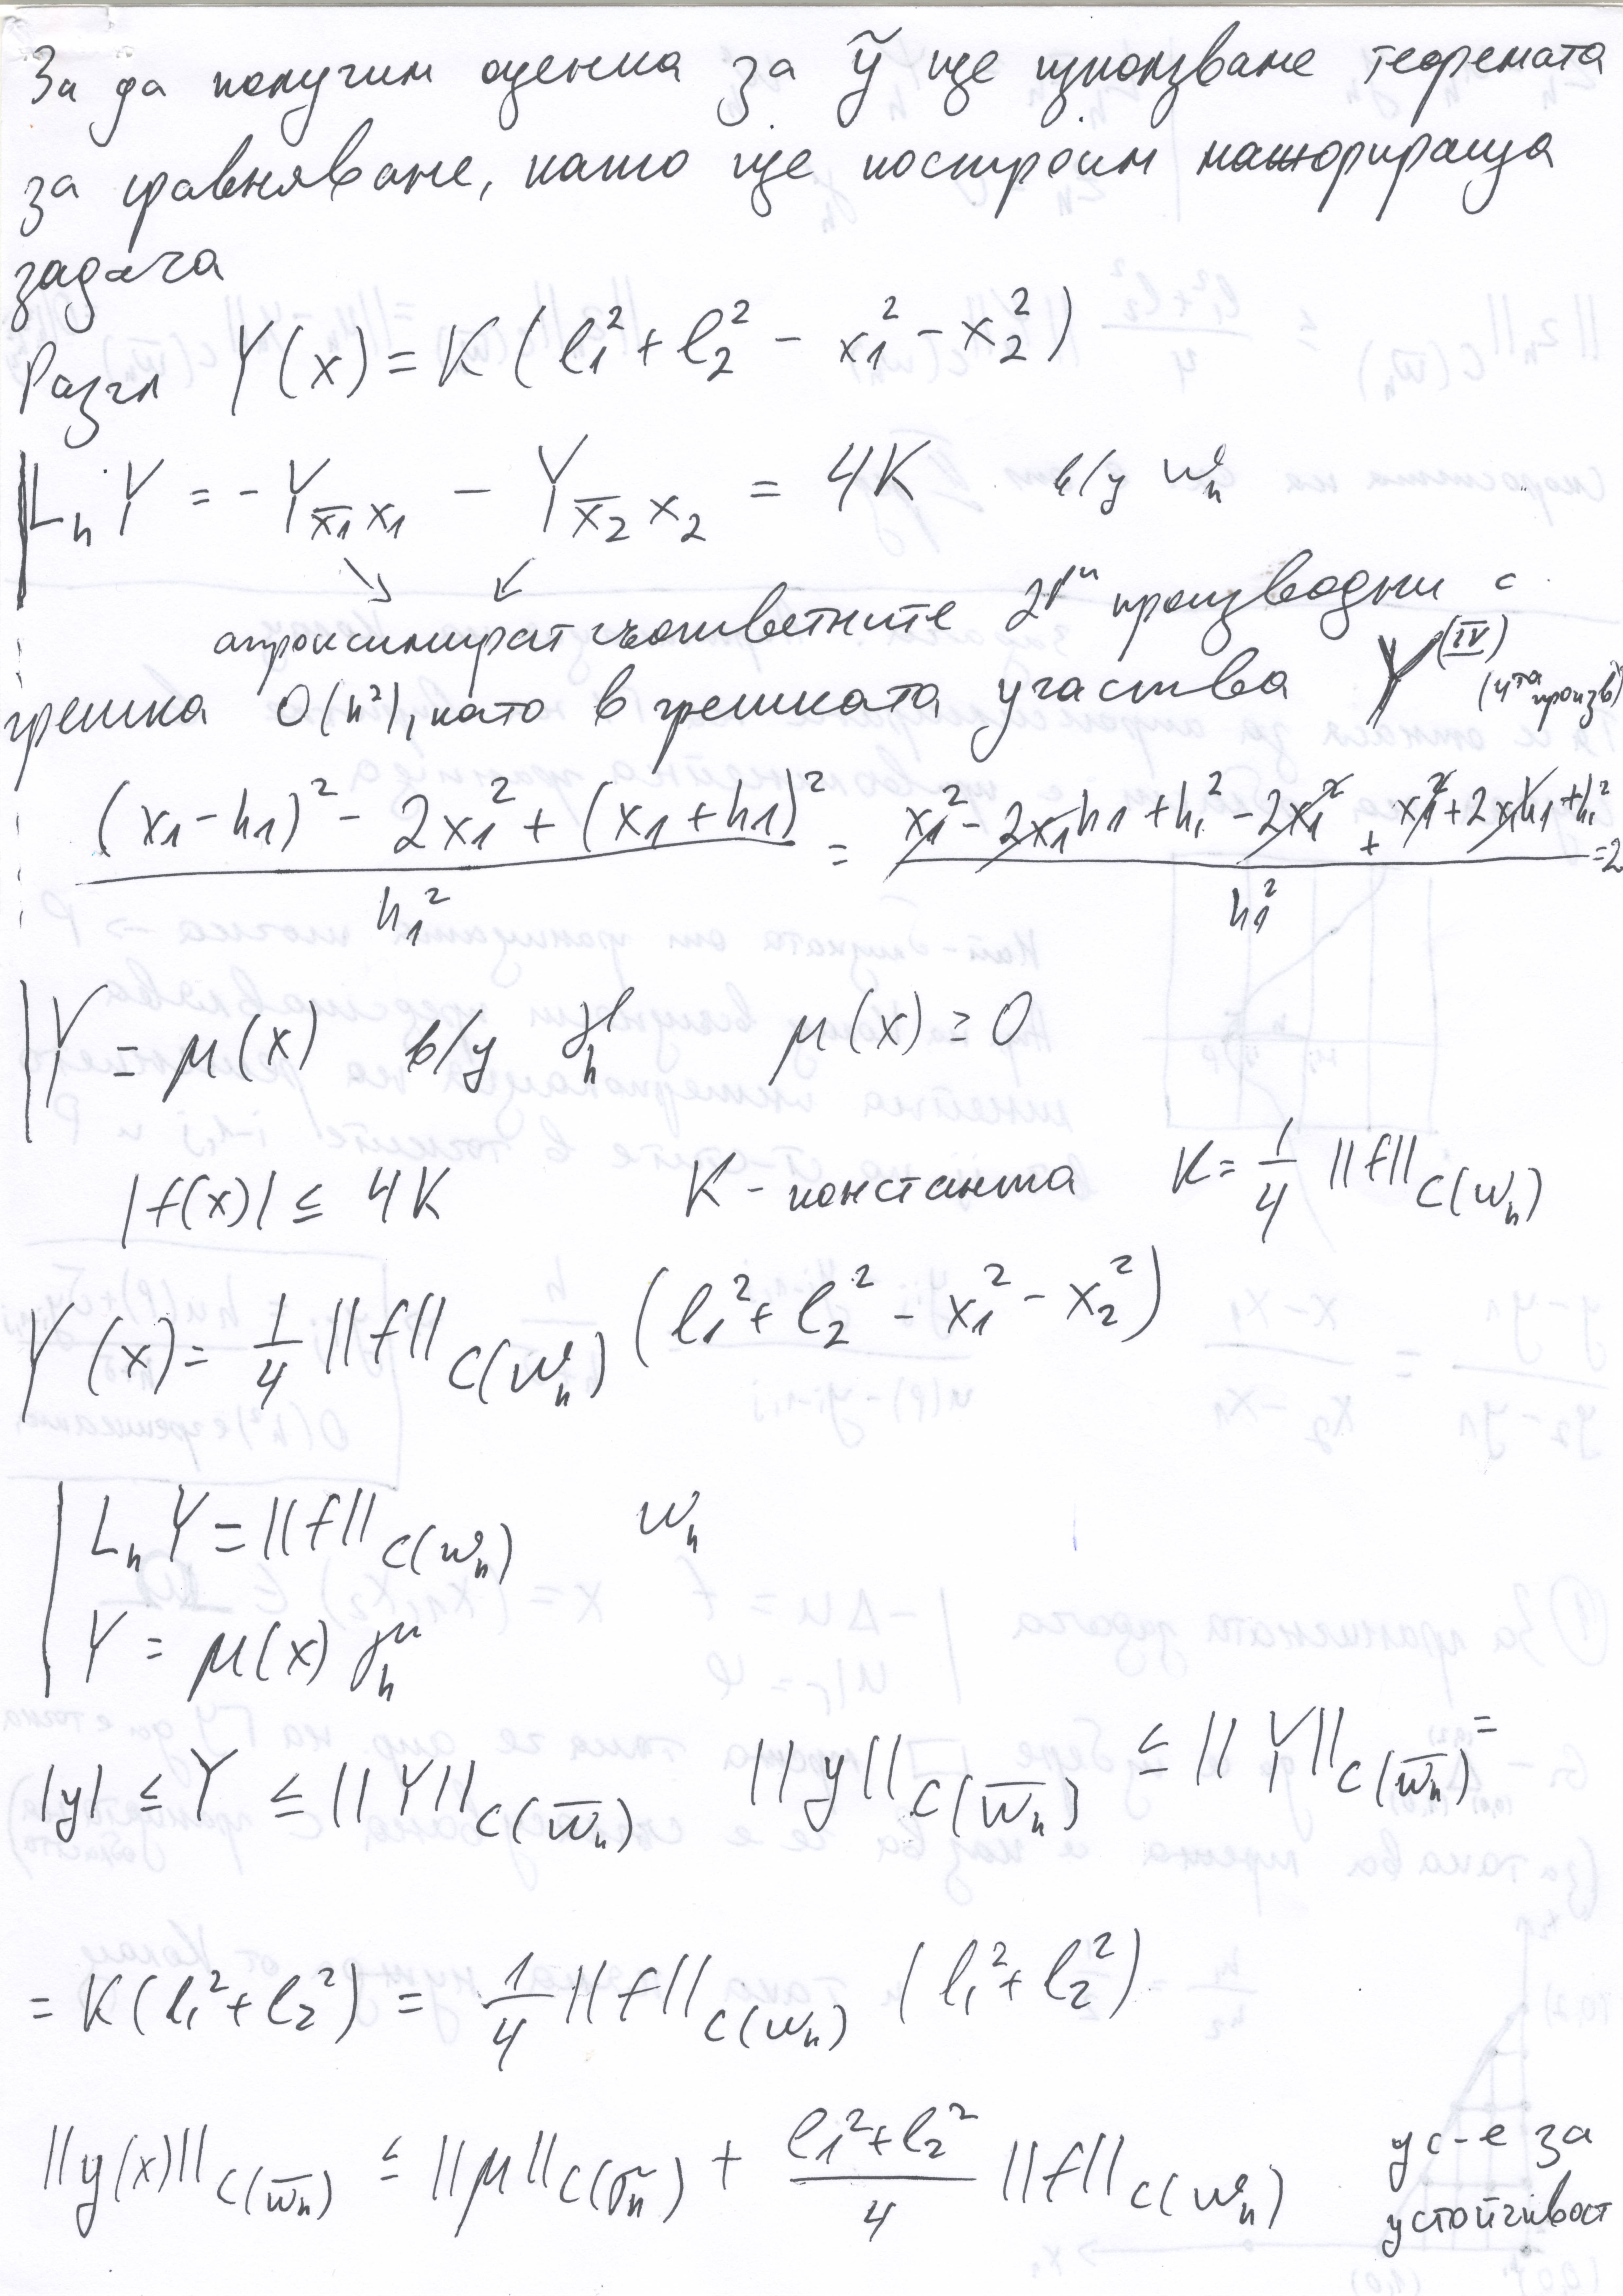 За да получим оценка за ỹ ще използваме теоремата
за сравняване, като ще построим мажорираща
задача
Разгл Y(x) = K(l₁² + l₂² - x₁² - x₂²)
LₕY = -Y_{x̄₁x₁} - Y_{x̄₂x₂} = 4K в/у ωₕ
↘ ↙
апроксимират съответните 2ри производни с
грешка O(h²), като в грешката участва Y^(IV) (4та произв)
((x₁-h₁)² - 2x₁² + (x₁+h₁)²)/h₁² = (x₁² - 2x₁h₁ + h₁² - 2x₁² + x₁² + 2x₁h₁ + h₁²)/h₁² = 2
Y = μ(x) в/у γₕ μ(x) ≥ 0
|f(x)| ≤ 4K K - константа K = 1/4 ||f||_{C(ωₕ)}
Y(x) = 1/4 ||f||_{C(ωₕ)} (l₁² + l₂² - x₁² - x₂²)
LₕY = ||f||_{C(ωₕ)} ωₕ
Y = μ(x) γₕ
|y| ≤ Y ≤ ||Y||_{C(ω̄ₕ)} ||y||_{C(ω̄ₕ)} ≤ ||Y||_{C(ω̄ₕ)} =
= K(l₁² + l₂²) = 1/4 ||f||_{C(ωₕ)} (l₁² + l₂²)
||y(x)||_{C(ω̄ₕ)} ≤ ||μ||_{C(γₕ)} + (l₁² + l₂²)/4 ||f||_{C(ωₕ)} ус-е за
устойчивост